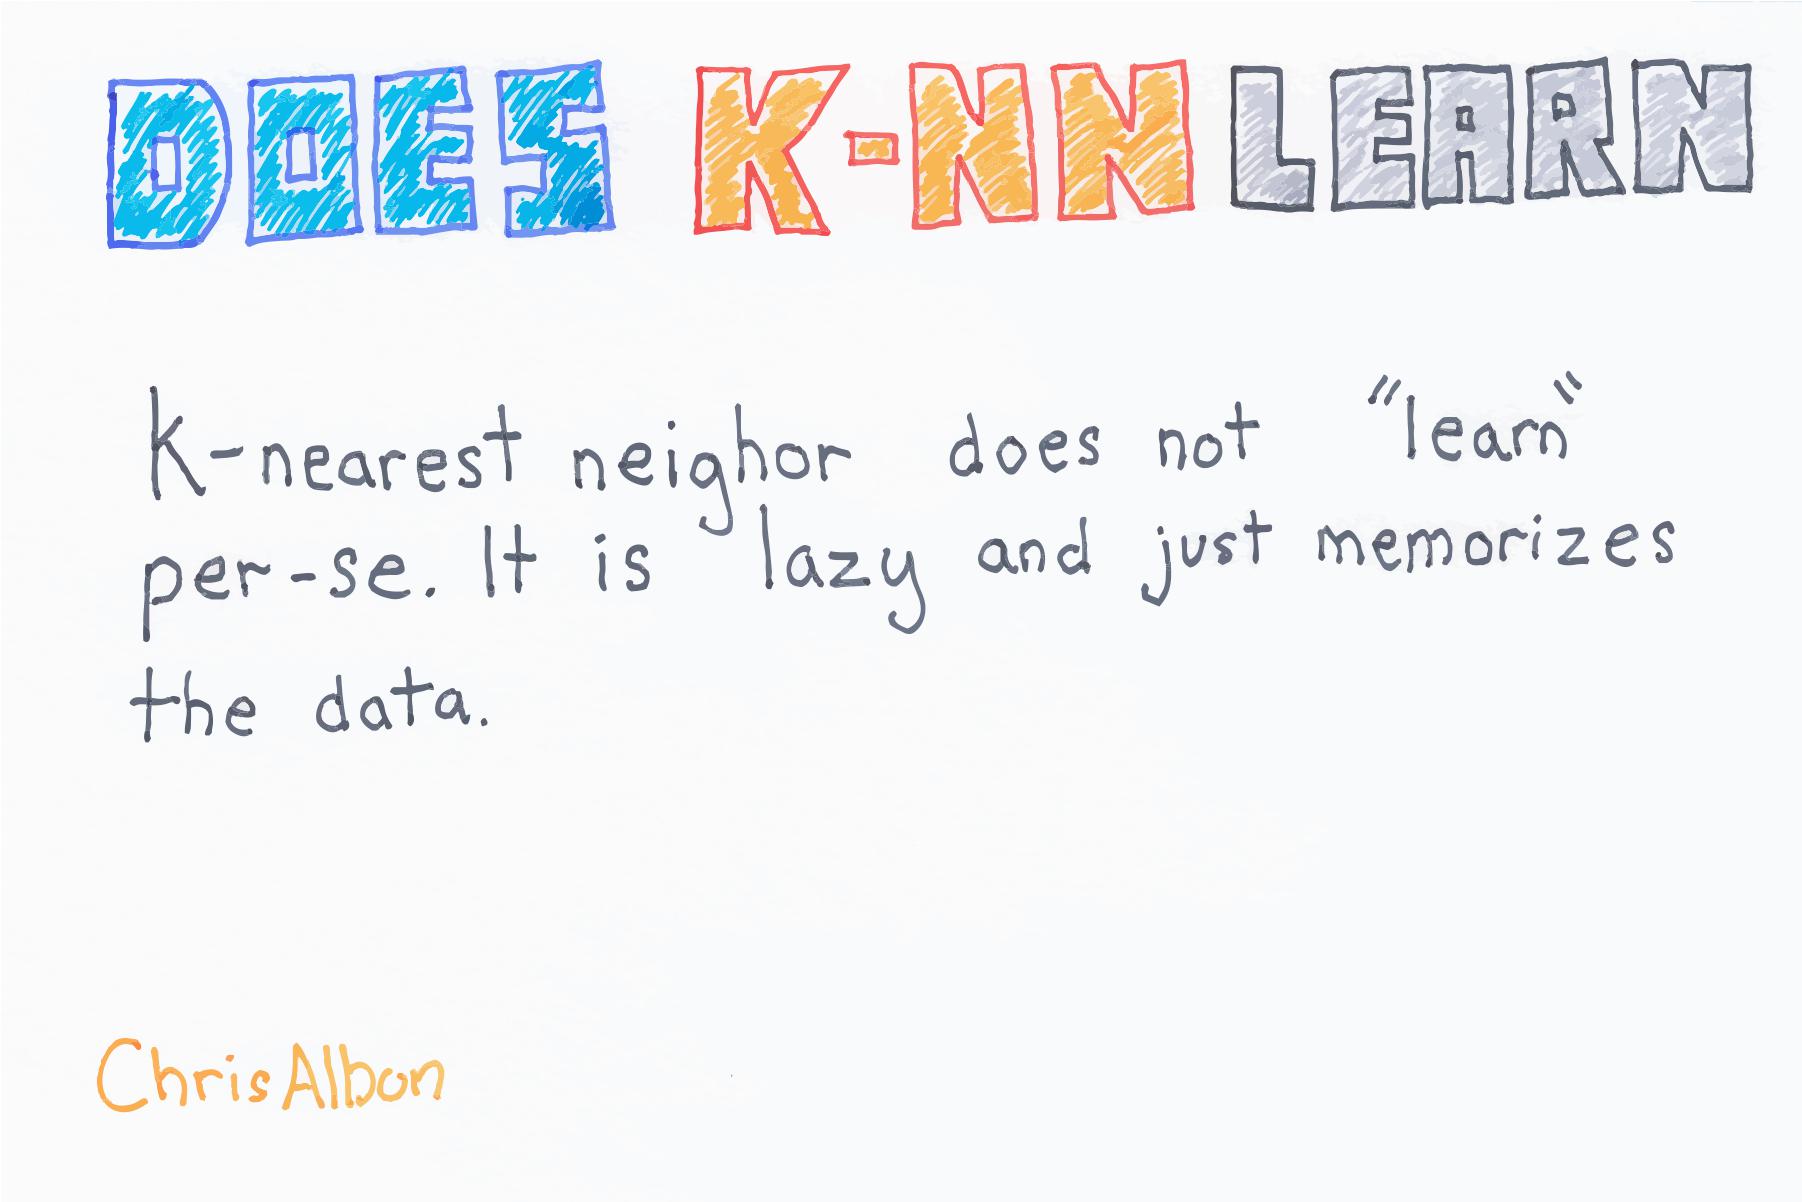 DOES K-NN LEARN
K-nearest neighor does not "learn"
per-se. It is lazy and just memorizes
the data.
ChrisAlbon